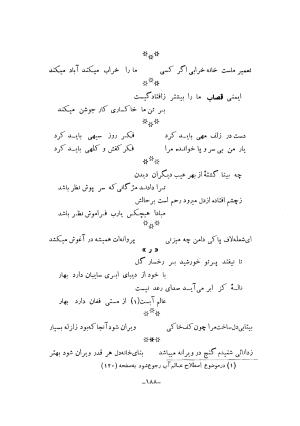 تعمیر ماست خانه خرابی اگر کسی ما را خراب میکند آباد میکند
ایمنی قصاب ما را بیشتر زافتادگیست
بر تن ما خاکساری کار جوشن میکند
دست در زلف مهی باید کرد فکر روز سیهی باید کرد
یار من بی سر و پا خوانده مرا فکر کفش و کلهی باید کرد
چه بینا گشتهٔ از بهر عیب دیگران دیدن
ترا دادند مژگانی که سر پوش نظر باشد
زچشم افتاده ازدل میرود رحم است برحالش
مبادا هیچکس یارب فراموش نظر باشد
ای شعله لاف پاکی دامن چه میزنی پروانه‌ات همیشه در آغوش میکشد
« ر »
تا نیفتد پرتو خورشید بر رخسار گل
با خود از دیبای ابری سایبان دارد بهار
نالهٔ کز ابر می‌آید صدای رعد نیست
عالم آبست(۱) از مستی فغان دارد بهار
بینایی دل ساخت مرا چون کف خاکی ویران شود آنجا که بود زلزله بسیار
زدانائی شنیدم گنج در ویرانه میباشد بنای خانه دل هر قدر ویران شود بهتر
(۱) درموضوع اصطلاح عالم آب رجوع شود به صفحه (۱۳۰)
-۱۸۸-